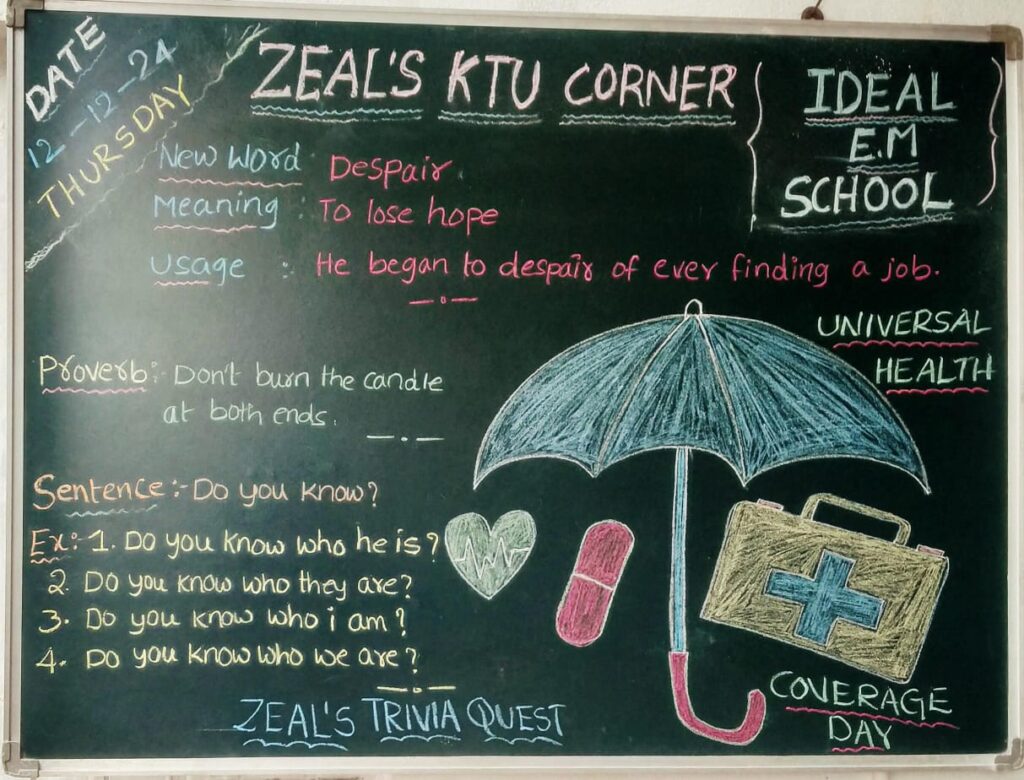 DATE
12-12-24
THURSDAY
ZEAL'S KTU CORNER
IDEAL
E.M
SCHOOL
New Word : Despair.
Meaning : To lose hope
Usage :- He began to despair of ever finding a job.
UNIVERSAL
HEALTH
Proverb:- Don't burn the candle
at both ends.
Sentence:- Do you know?
Ex:- 1. Do you know who he is?
2. Do you know who they are?
3. Do you know who i am?
4. Do you know who we are?
COVERAGE
DAY
ZEAL'S TRIVIA QUEST